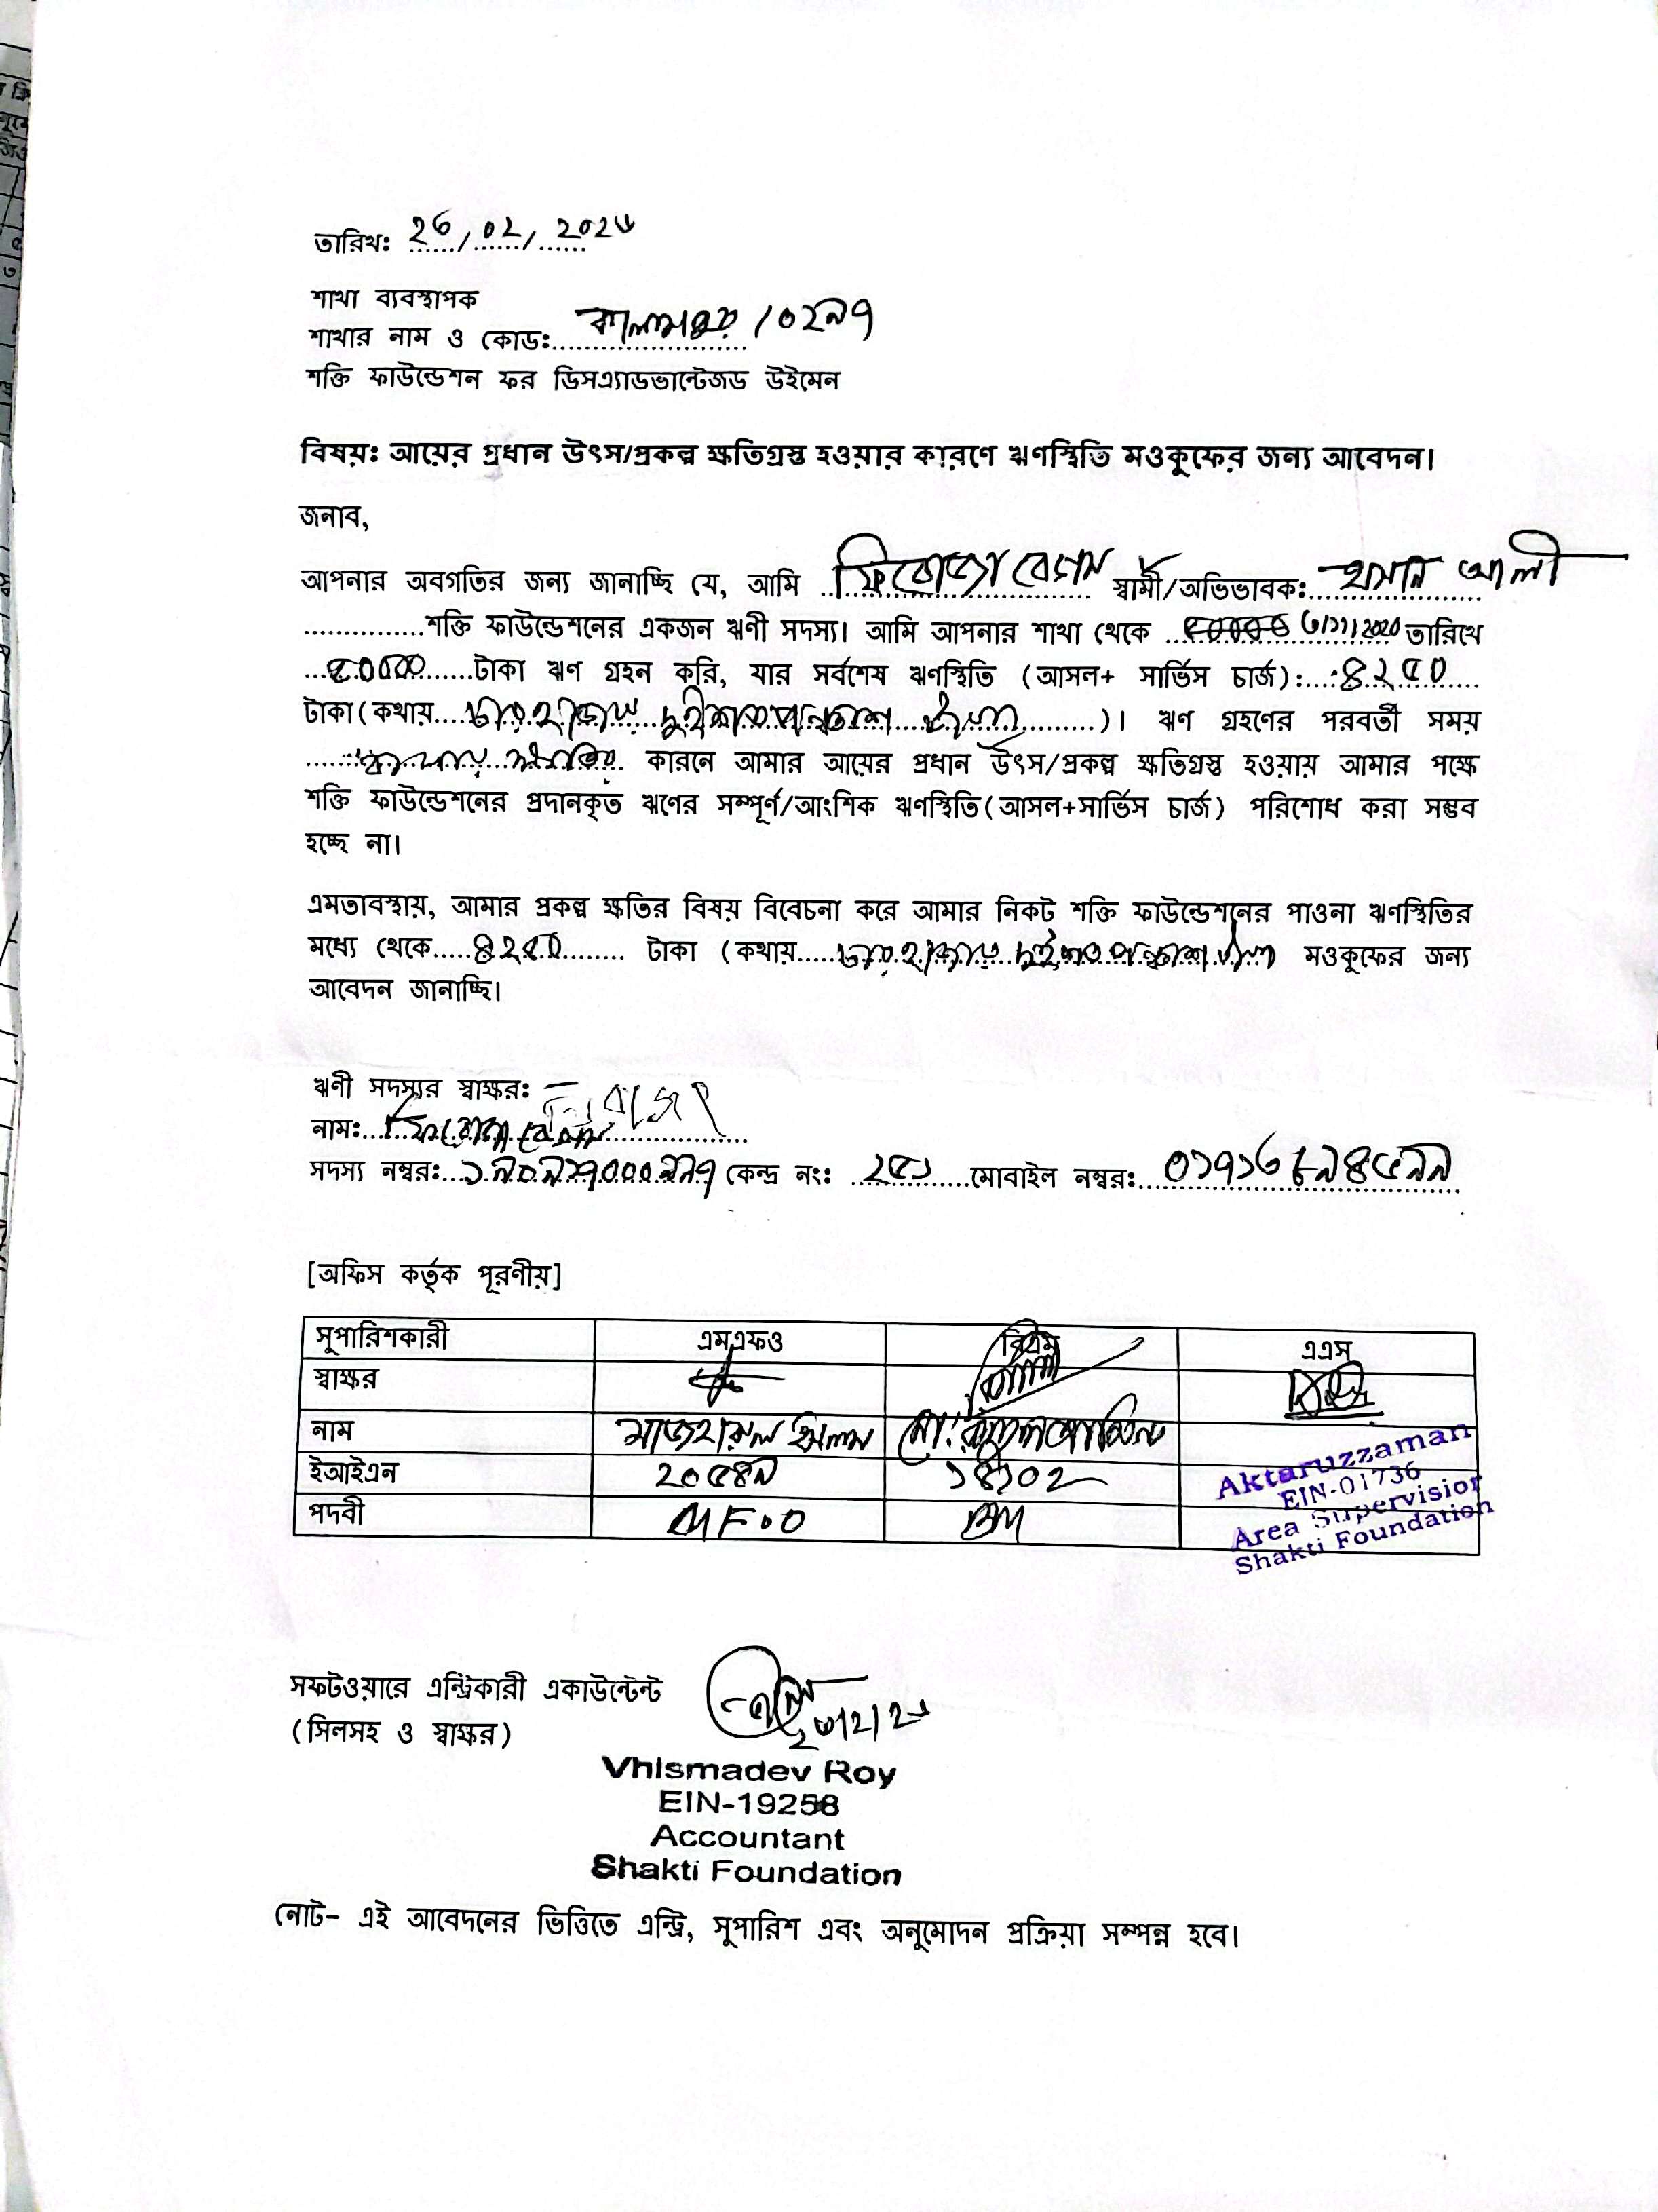 তারিখ: ২৬/০২/২০২৬
শাখা ব্যবস্থাপক
শাখার নাম ও কোড: /০২৯৭
শক্তি ফাউন্ডেশন ফর ডিসএ্যাডভান্টেজড উইমেন
বিষয়: আয়ের প্রধান উৎস/প্রকল্প ক্ষতিগ্রস্ত হওয়ার কারণে ঋণস্থিতি মওকুফের জন্য আবেদন।
জনাব,
আপনার অবগতির জন্য জানাচ্ছি যে, আমি ফিরোজা বেগম স্বামী/অভিভাবক: হাসান আলী
শক্তি ফাউন্ডেশনের একজন ঋণী সদস্য। আমি আপনার শাখা থেকে তারিখে
৫০০০০ টাকা ঋণ গ্রহন করি, যার সর্বশেষ ঋণস্থিতি (আসল+ সার্ভিস চার্জ): ৪২৫০
টাকা(কথায় চার হাজার দুইশত পঞ্চাশ টাকা)। ঋণ গ্রহণের পরবর্তী সময়
কারনে আমার আয়ের প্রধান উৎস/প্রকল্প ক্ষতিগ্রস্ত হওয়ায় আমার পক্ষে
শক্তি ফাউন্ডেশনের প্রদানকৃত ঋণের সম্পূর্ণ/আংশিক ঋণস্থিতি(আসল+সার্ভিস চার্জ) পরিশোধ করা সম্ভব
হচ্ছে না।
এমতাবস্থায়, আমার প্রকল্প ক্ষতির বিষয় বিবেচনা করে আমার নিকট শক্তি ফাউন্ডেশনের পাওনা ঋণস্থিতির
মধ্যে থেকে ৪২৫০ টাকা (কথায় চার হাজার দুইশত পঞ্চাশ টাকা মওকুফের জন্য
আবেদন জানাচ্ছি।
ঋণী সদস্যর স্বাক্ষর: ফিরোজা
নাম: ফিরোজা বেগম
সদস্য নম্বর: কেন্দ্র নং: ২৫১ মোবাইল নম্বর:
[অফিস কর্তৃক পূরণীয়]
সুপারিশকারী এমএফও বিএম এএস
স্বাক্ষর
নাম মাজহারুল ইসলাম
ইআইএন ২০৫৪৯
পদবী MFO BM
Aktaruzzaman
EIN-01736
Area Supervisior
Shakti Foundation
সফটওয়ারে এন্ট্রিকারী একাউন্টেন্ট
(সিলসহ ও স্বাক্ষর)
Vhismadev Roy
EIN-19258
Accountant
Shakti Foundation
নোট- এই আবেদনের ভিত্তিতে এন্ট্রি, সুপারিশ এবং অনুমোদন প্রক্রিয়া সম্পন্ন হবে।